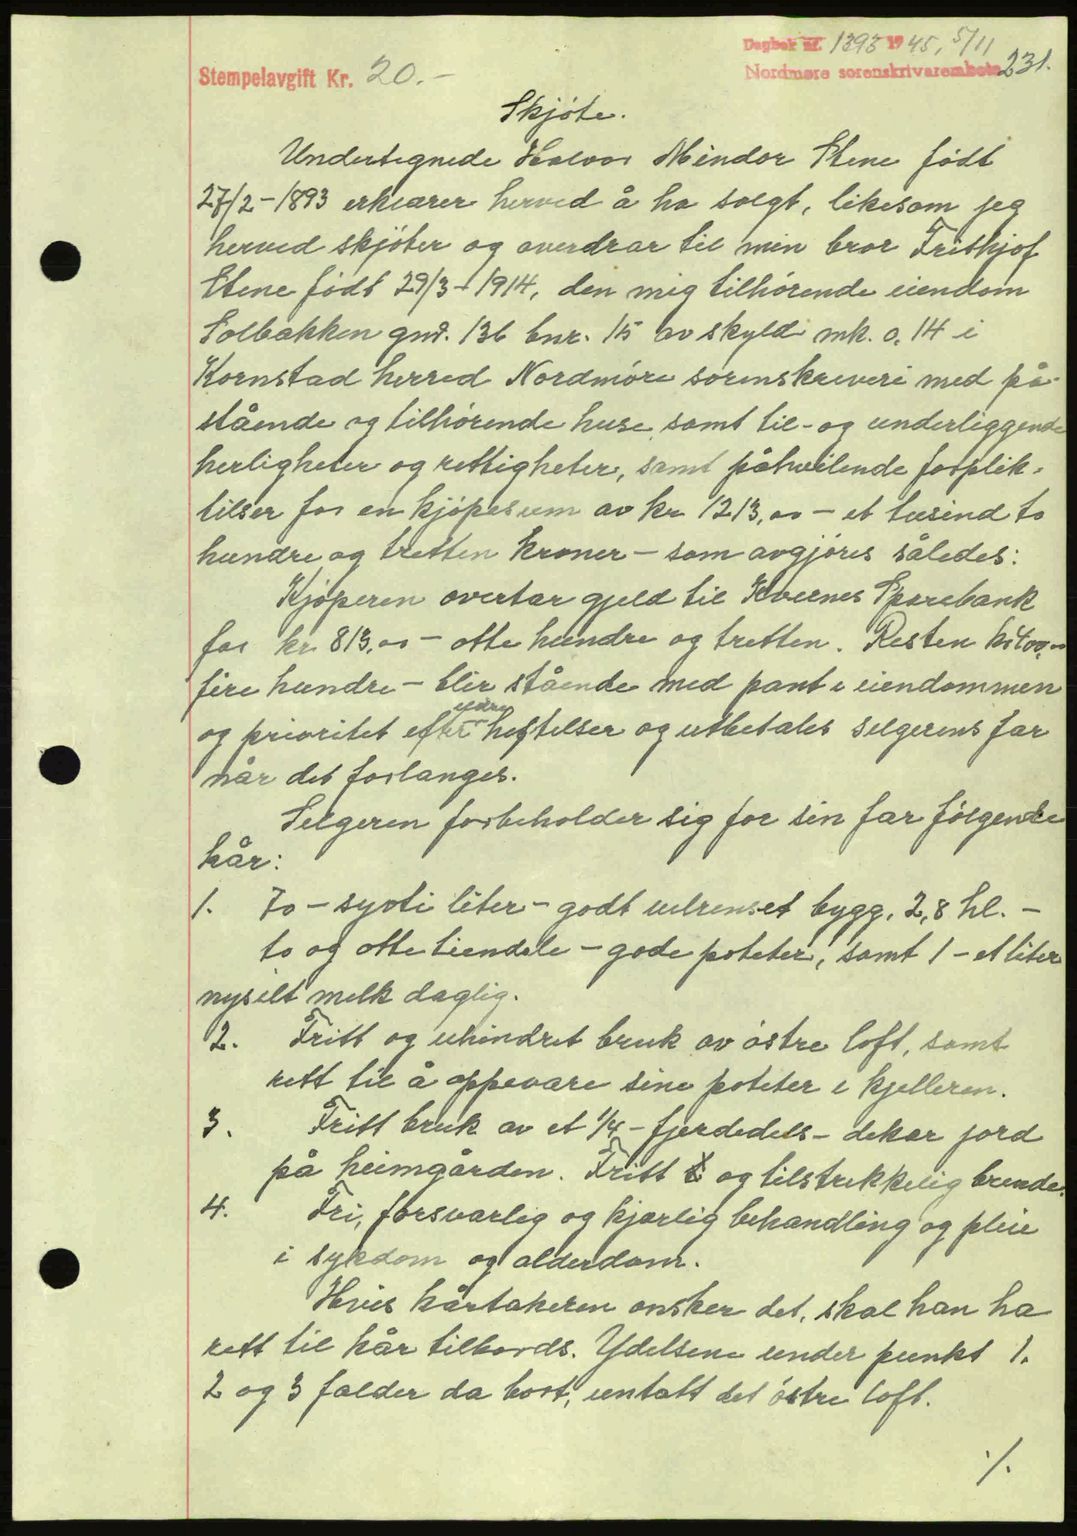 Dagbok nr. 1393 1945, 5/11
Stempelavgift Kr. 20.-
Nordmøre sorenskrivarembete 231.
Skjøte.
Undertegnede Halvor Mindor Stene født
27/2-1893 erklærer herved å ha solgt, likesom jeg
herved skjøter og overdrar til min bror Frithjof
Stene født 29/3-1914, den mig tilhørende eiendom
Solbakken gnr. 136 bnr. 15 av skyld mk. 0,14 i
Kornstad herred Nordmøre sorenskriveri med på-
stående og tilhørende huse, samt til- og underliggende
herligheter og rettigheter, samt påhvilende forplik-
tilser for en kjøpesum av kr 1213,00 - et tusind to
hundre og tretten kroner - som avgjøres således:
Kjøperen overtar gjeld til Kvernes Sparebank
for kr 813,00 - otte hundre og tretten. Resten kr 400,-
fire hundre - blir stående med pant i eiendommen
og prioritet efter heftelser og utbetales selgerens far
når det forlanges.
Selgeren forbeholder sig for sin far følgende
kår:
1. 70 - sytti liter - godt velrenset bygg, 2,8 hl. -
to og otte tiendele - gode poteter, samt 1 - et liter
nysilt melk daglig.
2. Fritt og uhindret bruk av østre loft, samt
rett til å oppevare sine poteter i kjelleren.
3. Fritt bruk av et 1/4 - fjerdedels - dekar jord
på heimgården. Fritt og tilstrekkelig brende.
4. Fri, forsvarlig og kjærlig behandling og pleie
i sykdom og alderdom.
Hvis kårtakeren ønsker det, skal han ha
rett til kår tilbords. Ydelsene under punkt 1.
2 og 3 falder da bort, untatt det østre loft.
./.